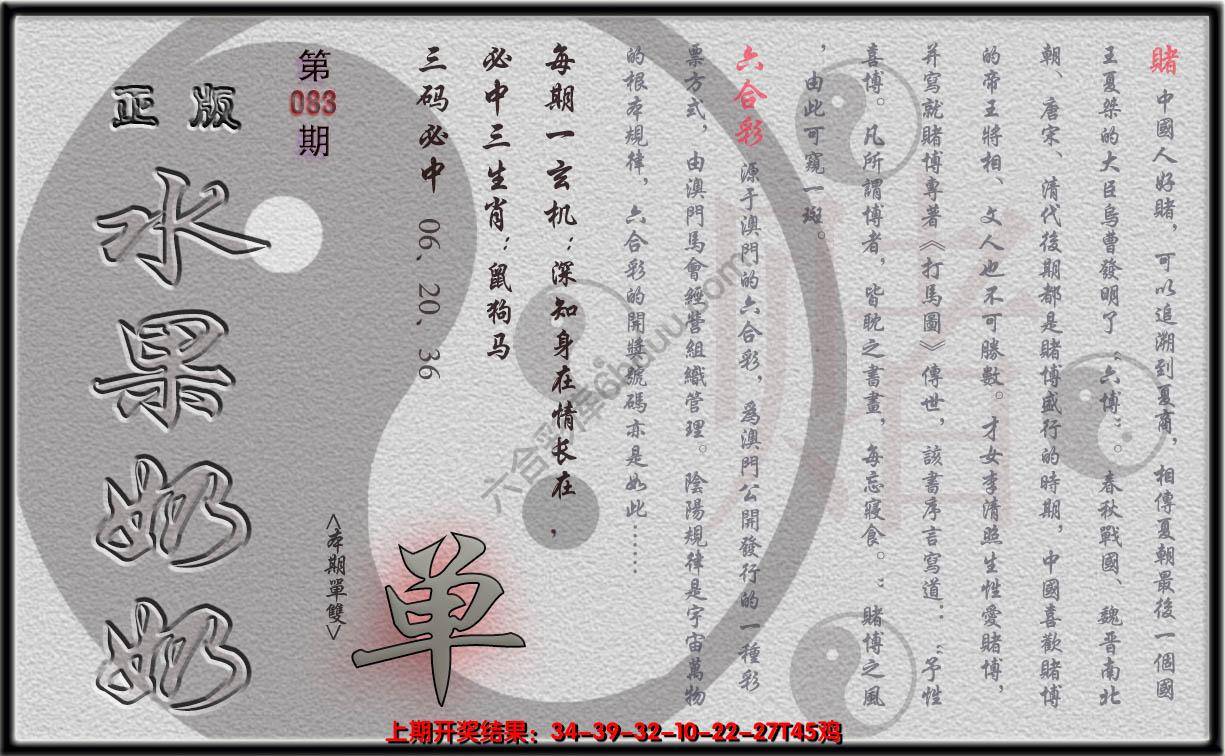 賭 中國人好賭，可以追溯到夏商，相傳夏朝最後一個國
王夏桀的大臣烏曹發明了“六博”。春秋戰國、魏晋南北
朝、唐宋、清代後期都是賭博盛行的時期，中國喜歡賭博
的帝王將相、文人也不可勝數。才女李清照生性愛賭博，
并寫就賭博專著《打馬圖》傳世，該書序言寫道：“予性
喜博。凡所謂博者，皆耽之書畫，每忘寢食。”賭博之風
，由此可窺一斑。
六合彩 源于澳門的六合彩，爲澳門公開發行的一種彩
票方式，由澳門馬會經營組織管理。陰陽規律是宇宙萬物
的根本規律，六合彩的開獎號碼亦是如此……
每期一玄机：深知身在情长在，
必中三生肖：鼠狗马
三码必中 06、20、36
第
083
期
正版
水果奶奶
<本期單雙>
单
賭
六合彩库6huuu.com
上期开奖结果：34-39-32-10-22-27T45鸡